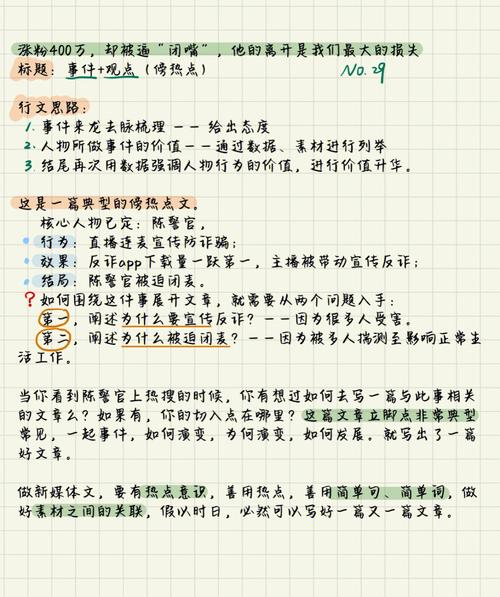 涨粉400万，却被逼“闭嘴”，他的离开是我们最大的损失
标题：事件+观点（傍热点） No.29
行文思路：
1. 事件来龙去脉梳理 －－ 给出态度
2. 人物所做事件的价值－－通过数据、素材进行列举
3. 结尾再次用数据强调人物行为的价值，进行价值升华。
这是一篇典型的傍热点文。
核心人物已定：陈警官，
行为：直播连麦宣传防诈骗；
效果：反诈app下载量一跃第一，主播被带动宣传反诈；
结局：陈警官被迫闭麦。
？如何围绕这件事展开文章，就需要从两个问题入手：
第一，阐述为什么要宣传反诈？－－因为很多人受害。
第二，阐述为什么被迫闭麦？－－因为被多人揣测至影响正常生
活工作。
当你看到陈警官上热搜的时候，你有想过如何去写一篇与此事相关
的文章么？如果有，你的切入点在哪里？这篇文章立脚点非常典型
常见，一起事件，如何演变，为何演变，如何发展。就写出了一篇
好文章。
做新媒体文，要有热点意识，善用热点，善用简单句、简单词，做
好素材之间的关联，假以时日，必然可以写好一篇又一篇文章。